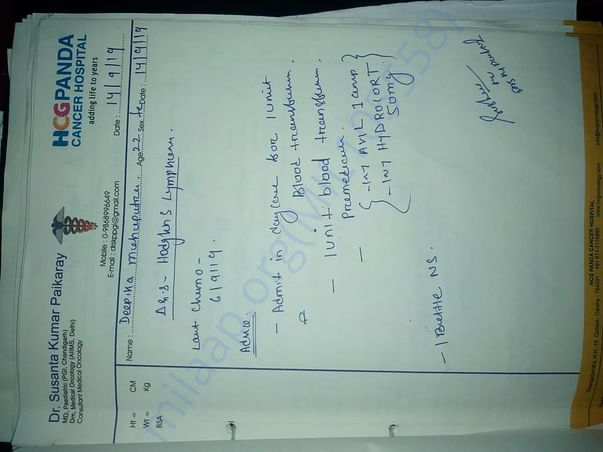 Dr. Susanta Kumar Paikaray
MD, Paediatric (PGI, Chandigarh)
Dm, Medical Oncology (AIIMS, Delhi)
Consultant Medical Oncology
Mobile : 0-9868996649
E-mail : drskppgi@gmail.com
HCG PANDA
CANCER HOSPITAL
adding life to years
Date : 14/9/19
Name : Deepika Age: 22 Sex: Date: 14/9/19
Ht = CM
Wt = Kg
BSA
Hodgkin's Lymphoma.
Last Chemo -
6/9/19.
Advice
- Admit in daycare for 1unit
Blood transfusion.
- 1unit blood transfusion.
Premedication.
- INJ AVIL 1 amp
- INJ HYDROCORT
50mg
- 1 Bottle NS.
HCG PANDA CANCER HOSPITAL
milaap.org